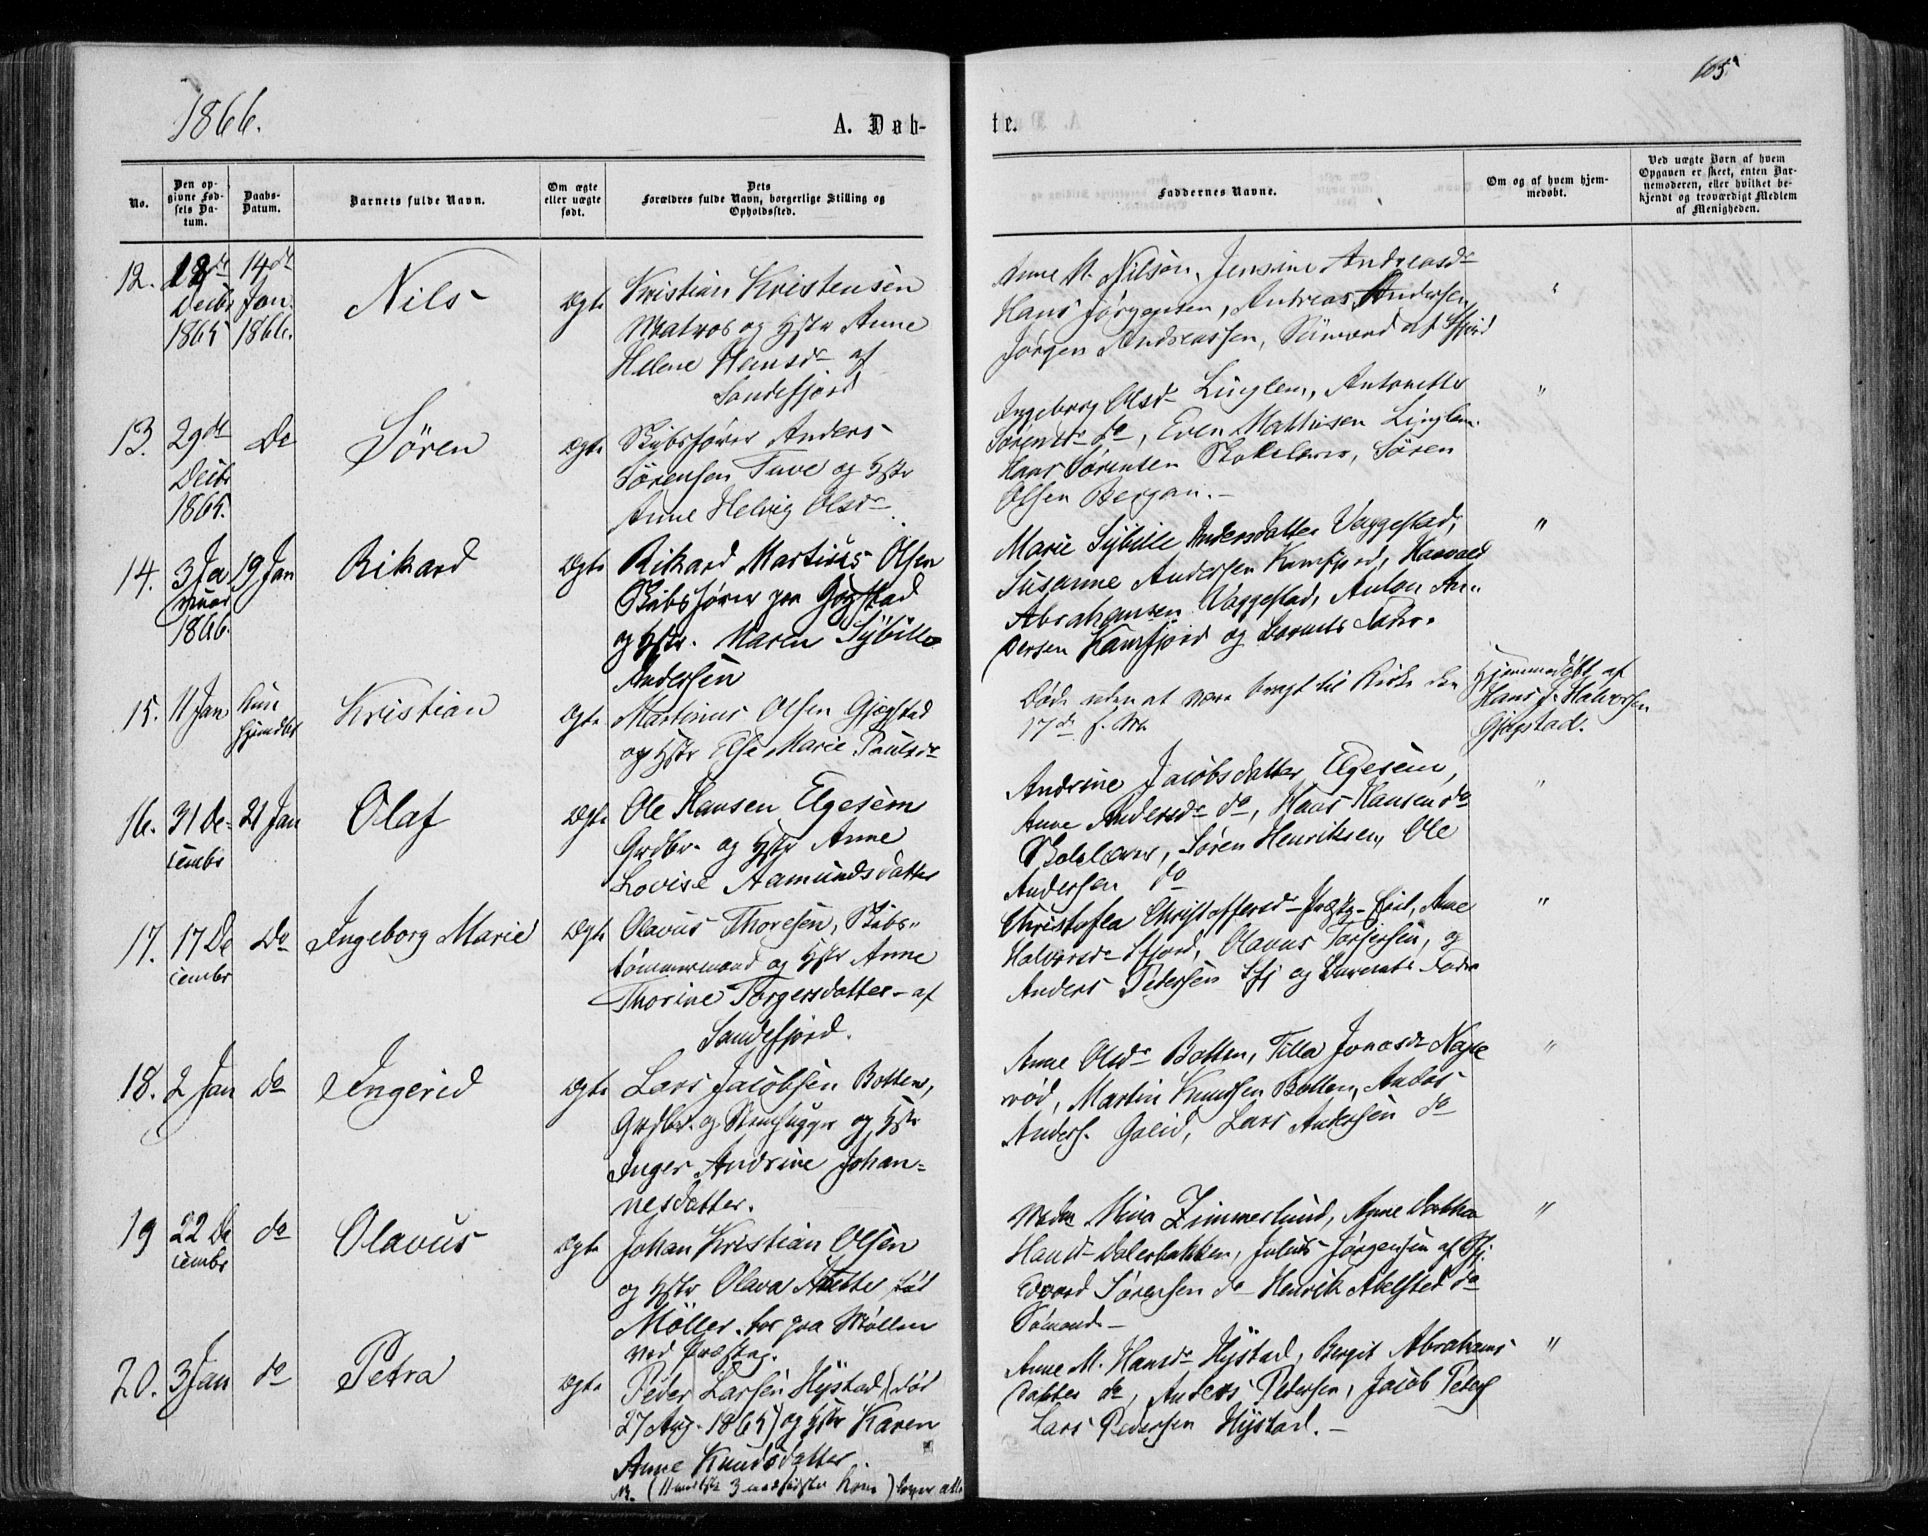 1866.
A. Døb-
te.
105
No.
Den op-
givne Fød-
sels Da-
tum.
Daabs-
Datum.
Barnets fulde Navn.
Om ægte
eller uægte
født.
Dets
Forældres fulde Navn, borgerlige Stilling og
Opholdssted.
Faddernes Navne.
Om og af hvem hjem-
medøbt.
Ved uægte Børn af hvem
Opgaven er skeet, enten Bar-
nemoderen, eller hvilket be-
kjendt og troværdigt Medlem
af Menigheden.
12.
Decbr
1865
14de
Jan.
1866.
Nils
Ægte
Kristian Kristensen
Matros og Hstr Anne
Helene Hansdr af
Sandefjord
Anne M. Nilsen, Jensine Andreasdr
Hans Jørgensen, Andreas Andersen,
Jørgen Andreassen, Sømænd af Sfjord
"
13.
29de
Decbr
1865.
Do
Søren
Ægte
Skibsfører Anders
Sørensen Tuve og Hstr
Anne Helvig Olsdr
Ingeborg Olsdr Linglem, Antonette
Sørensdr do, Even Mathisen Linglem
Hans Sørensen Skolelærer, Søren
Olsen Bergan.
"
14.
3 Ja
nuar
1866.
19 Jan
Rikard
Ægte
Rikard Martinus Olsen
Skibsfører paa Gogstad
og Hstr. Maren Sybille
Andersen
Marie Sybille Andersdatter Vaggestad,
Susanne Andersen Kamfjord, Haavald
Abrahamsen Vaggestad, Anton An-
dersen Kamfjord og Barnets Fader.
"
15.
11 Jan
Kun
hjemdbt
Kristian
Ægte
Martinus Olsen Gjøgstad
og Hstr Else Marie Paulsdr
Døde uden at være bragt til Kirke den
17de s. M.
Hjemmedøbt af
Hans J. Halvorsen
Gjøgstad.
16.
31 De-
cembr
21 Jan
Olaf
Ægte
Ole Hansen Elgesem
Grdbr. og Hstr Anne
Lovise Aamundsdatter
Andrine Jacobsdatter Elgesem,
Anne Andersdr do, Hans Hansen do
Skolelærer, Søren Henriksen, Ole
Andersen do
"
17.
17 De
cembr
Do
Ingeborg Marie
Ægte
Olavus Thoresen, Skibs-
tømmermand og Hstr Anne
Thorine Torgersdatter af
Sandefjord.
Christofia Christoffersdr Præstg-Eiet, Ane
Halvorsdr Sfjord, Olavus Torgersen, og
Anders Petersen Sfj og Barnets Fader
"
18.
2 Jan
Do
Ingerid
Ægte
Lars Jacobsen Botten,
Grdbr. og Stenhugger og Hstr
Inger Andrine Johan-
nesdatter.
Anne Olsdr Botten, Tilla Jonasdr Nape
rød, Martin Knudsen Botten, Anders
Anders. Golid, Lars Andersen do
"
19
22 De
cembr
do
Olavus
Ægte
Johan Kristian Olsen
og Hstr Olava Anette født
Møller. bor paa Møllen
ved Præsteg.
Mina Zimmerlund, Anne Dorthea
Hansdr Dalerbakken, Julius Jørgensen af Sfj.
Edvard Sørensen do Henrik Akelsted do
Sømænd
"
20.
3 Jan
do
Petra
Ægte
Peder Larsen Hystad, (død
27 Aug. 1865) og Hstr Karen
Anne Knudsdatter
Anne M. Hansdr Hystad, Bergit Abrahams
datter do, Anders Pedersen, Jacob Peders
Lars Pedersen Hystad.
"